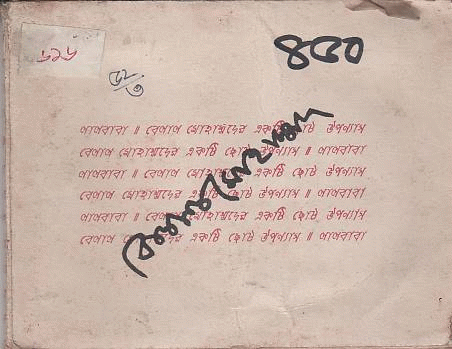 ৬১৬
লালবাবা ॥ বেলাল মোহাম্মদের একটি ছোট উপন্যাস
বেলাল মোহাম্মদের একটি ছোট উপন্যাস ॥ লালবাবা
লালবাবা ॥ বেলাল মোহাম্মদের একটি ছোট উপন্যাস
বেলাল মোহাম্মদের একটি ছোট উপন্যাস ॥ লালবাবা
লালবাবা ॥ বেলাল মোহাম্মদের একটি ছোট উপন্যাস
বেলাল মোহাম্মদের একটি ছোট উপন্যাস ॥ লালবাবা
বেলাল মোহাম্মদ